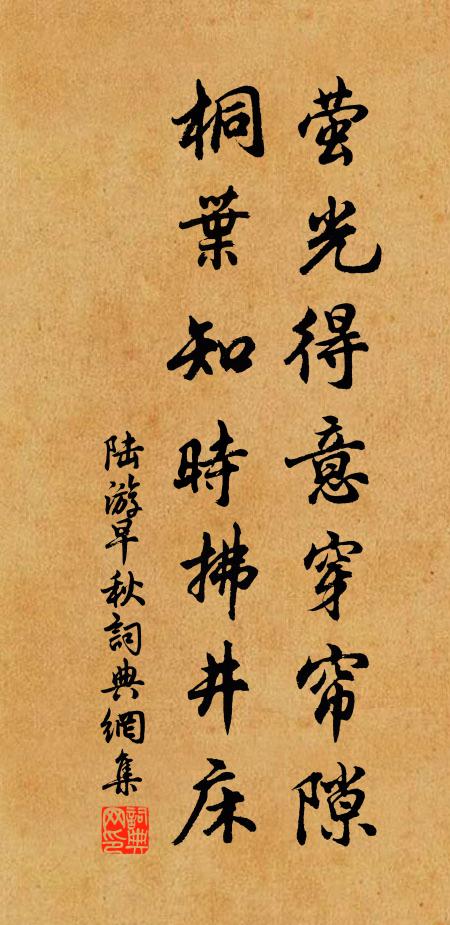 萤光得意穿帘隙
桐葉知時拂井床
陆游早秋詞典網集
詞典网印